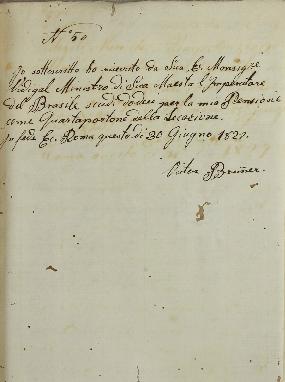 N° 50
Io sottoscritto ho ricevuto da Sua E. Monsigre
Vidigal Ministro di Sua Maestà l'Imperatore
del Brasile scudi dodeci per la mia Pensione
come Guardaportone della Legazione.
In fede Ec. Roma questo dì 30 Giugno 1827.
Brüner.